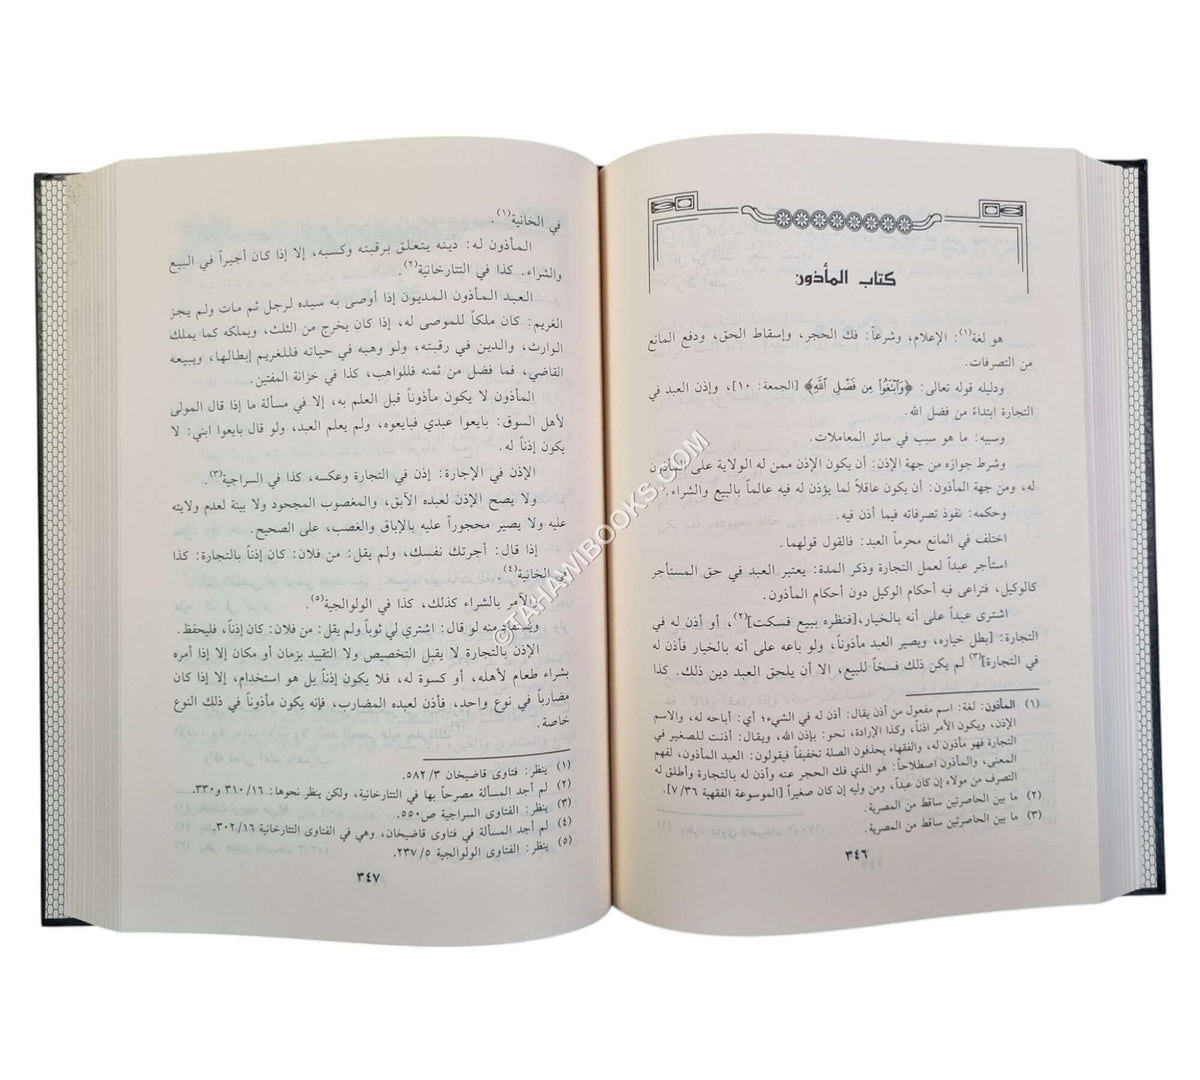 كتاب المأذون
هو لغة(١): الإعلام، وشرعاً: فك الحجر، وإسقاط الحق، ودفع المانع
من التصرفات.
ودليله قوله تعالى: ﴿وَٱبْتَغُواْ مِن فَضْلِ ٱللَّهِ﴾ [الجمعة: ١٠]، وإذن العبد في
التجارة ابتداءً من فضل الله.
وسببه: ما هو سبب في سائر المعاملات.
وشرط جوازه من جهة الإذن: أن يكون الإذن ممن له الولاية على المأذون
له، ومن جهة المأذون: أن يكون عاقلاً لما يؤذن له فيه عالماً بالبيع والشراء.
وحكمه: نفوذ تصرفاته فيما أذن فيه.
اختلف في المانع محرماً العبد: فالقول قولهما.
استأجر عبداً لعمل التجارة وذكر المدة: يعتبر العبد في حق المستأجر
كالوكيل، فتراعى فيه أحكام الوكيل دون أحكام المأذون.
اشترى عبداً على أنه بالخيار، [فنظره ببيع فسكت](٢)، أو أذن له في
التجارة: [بطل خياره، ويصير العبد مأذوناً، ولو باعه على أنه بالخيار فأذن له
في التجارة](٣) لم يكن ذلك فسخاً للبيع، الا أن يلحق العبد دين ذلك. كذا
(١) المأذون: لغة: اسم مفعول من أذن يقال: أذن له في الشيء؛ أي: أباحه له، والاسم
الإذن، ويكون الأمر اذناً، وكذا الإرادة، نحو: بإذن الله، ويقال: أذنت للصغير في
التجارة فهو مأذون له، والفقهاء يحذفون الصلة تخفيفاً فيقولون: العبد المأذون، لفهم
المعنى، والمأذون اصطلاحاً: هو الذي فك الحجر عنه وأذن له بالتجارة وأطلق له
التصرف من مولاه إن كان عبداً، ومن وليه إن كان صغيراً [الموسوعة الفقهية ٧/٣٦].
(٢) ما بين الحاصرتين ساقط من المصرية.
(٣) ما بين الحاصرتين ساقط من المصرية.
٣٤٦
في الخانية(١).
المأذون له: دينه يتعلق برقبته وكسبه، إلا إذا كان أجيراً في البيع
والشراء. كذا في التتارخانية(٢).
العبد المأذون المديون إذا أوصى به سيده لرجل ثم مات ولم يجز
الغريم: كان ملكاً للموصى له، إذا كان يخرج من الثلث، ويملكه كما يملك
الوارث، والدين في رقبته، ولو وهبه في حياته فللغريم إبطالها، ويبيعه
القاضي، فما فضل من ثمنه فللواهب، كذا في خزانة المفتين.
المأذون لا يكون مأذوناً قبل العلم به، إلا في مسألة ما إذا قال المولى
لأهل السوق: بايعوا عبدي فبايعوه، ولم يعلم العبد، ولو قال بايعوا ابني: لا
يكون إذناً له.
الإذن في الإجارة: إذن في التجارة وعكسه، كذا في السراجية(٣).
ولا يصح الإذن لعبده الآبق، والمغصوب المجحود ولا بينة لعدم ولايته
عليه ولا يصير محجوراً عليه بالإباق والغصب، على الصحيح.
إذا قال: أجرتك نفسك، ولم يقل: من فلان: كان إذناً بالتجارة: كذا
في الخانية(٤).
والأمر بالشراء كذلك، كذا في الولوالجية(٥).
ويستفاد منه لو قال: اشتري لي ثوباً ولم يقل: من فلان: كان إذناً، فليحفظ.
الإذن بالتجارة لا يقبل التخصيص ولا التقييد بزمان أو مكان إلا إذا أمره
بشراء طعام لأهله، أو كسوة له، فلا يكون إذناً بل هو استخدام، إلا إذا كان
مضارباً في نوع واحد، فأذن لعبده المضارب، فإنه يكون مأذوناً في ذلك النوع
خاصة.
(١) ينظر: فتاوى قاضيخان ٥٨٢/٣.
(٢) لم أجد المسألة مصرحاً بها في التتارخانية، ولكن ينظر نحوها: ٣١٠/١٦ و٣٣٠.
(٣) ينظر: الفتاوى السراجية ص٥٥٠.
(٤) لم أجد المسألة في فتاوى قاضيخان، وهي في الفتاوى التتارخانية ٣٠٢/١٦.
(٥) ينظر: الفتاوى الولوالجية ٢٣٧/٥.
٣٤٧
©TAHAWIBOOKS.COM